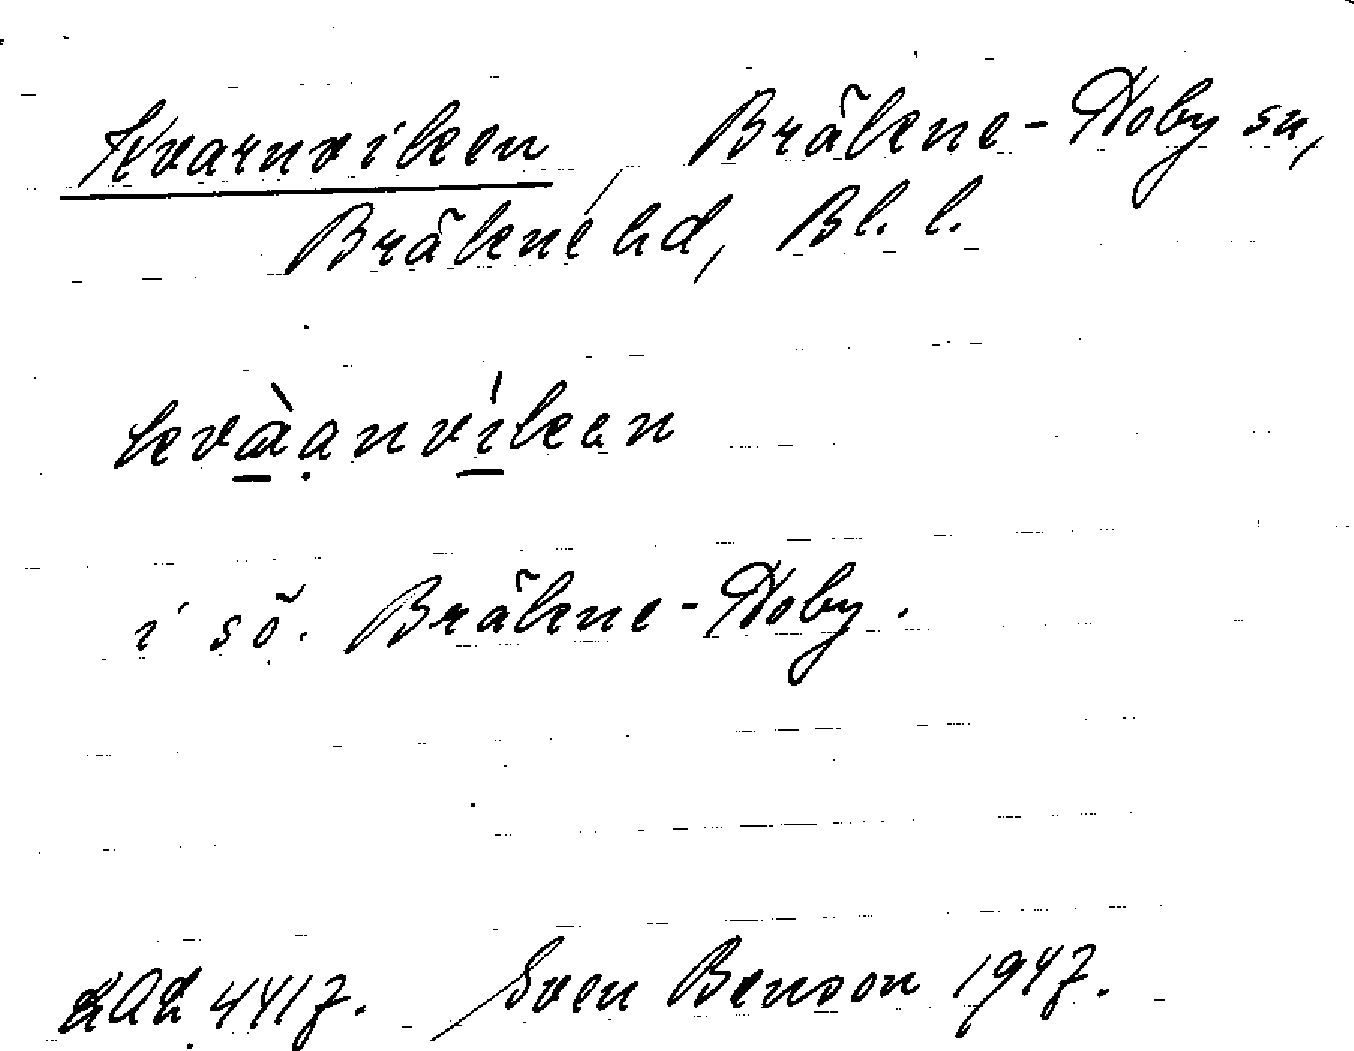 Kvarnviken, Bräkne-Hoby sn,
Bräkne hd, Bl. l.
kvàanvíken
i sö. Bräkne-Hoby.
LAL 4417. Sven Benson 1947.